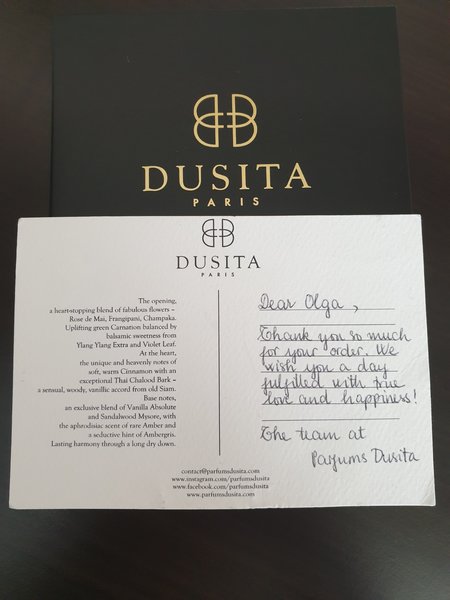 DUSITA
PARIS
DUSITA
PARIS
The opening,
a heart-stopping blend of fabulous flowers –
Rose de Mai, Frangipani, Champaka.
Uplifting green Carnation balanced by
balsamic sweetness from
Ylang Ylang Extra and Violet Leaf.
At the heart,
the unique and heavenly notes of
soft, warm Cinnamon with an
exceptional Thai Chalood Bark –
a sensual, woody, vanillic accord from old Siam.
Base notes,
an exclusive blend of Vanilla Absolute
and Sandalwood Mysore, with
the aphrodisiac scent of rare Amber and
a seductive hint of Ambergris.
Lasting harmony through a long dry down.
Dear Olga,
Thank you so much
for your order. We
wish you a day
fulfilled with true
love and happiness!
The team at
Parfums Dusita
contact@parfumsdusita.com
www.instagram.com/parfumsdusita
www.facebook.com/parfumsdusita
www.parfumsdusita.com